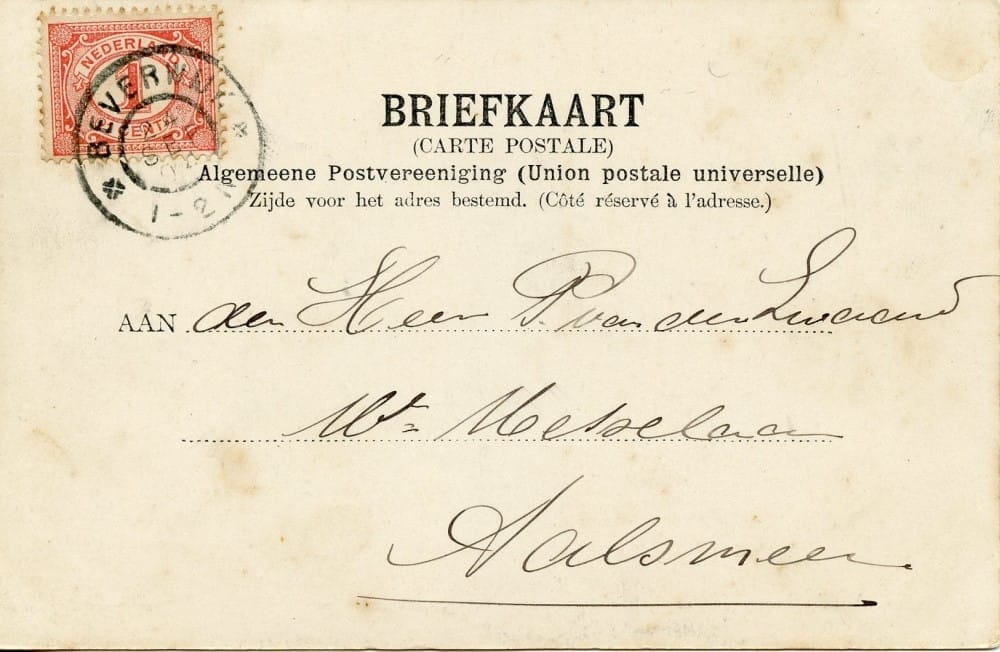 NEDERLAND
1
CENT
BEVERWIJK
1-2N
BRIEFKAART
(CARTE POSTALE)
Algemeene Postvereeniging (Union postale universelle)
Zijde voor het adres bestemd. (Côté réservé à l'adresse.)
AAN den Heer P. van der Zwaard
Messelaar
Aalsmeer